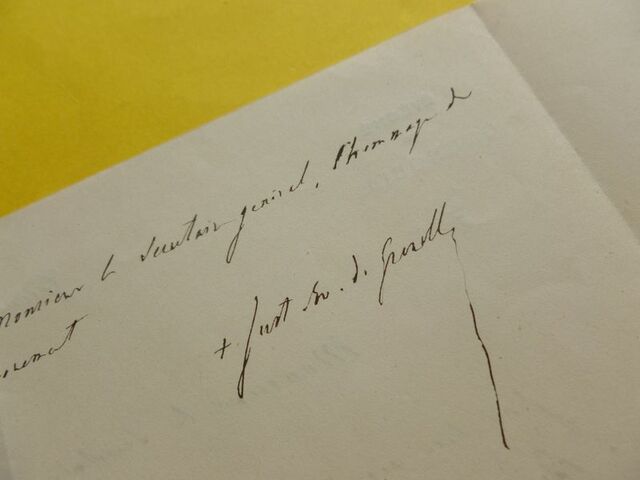 Monsieur le Secrétaire général, l'hommage de
+ Just Ev. de Grenoble